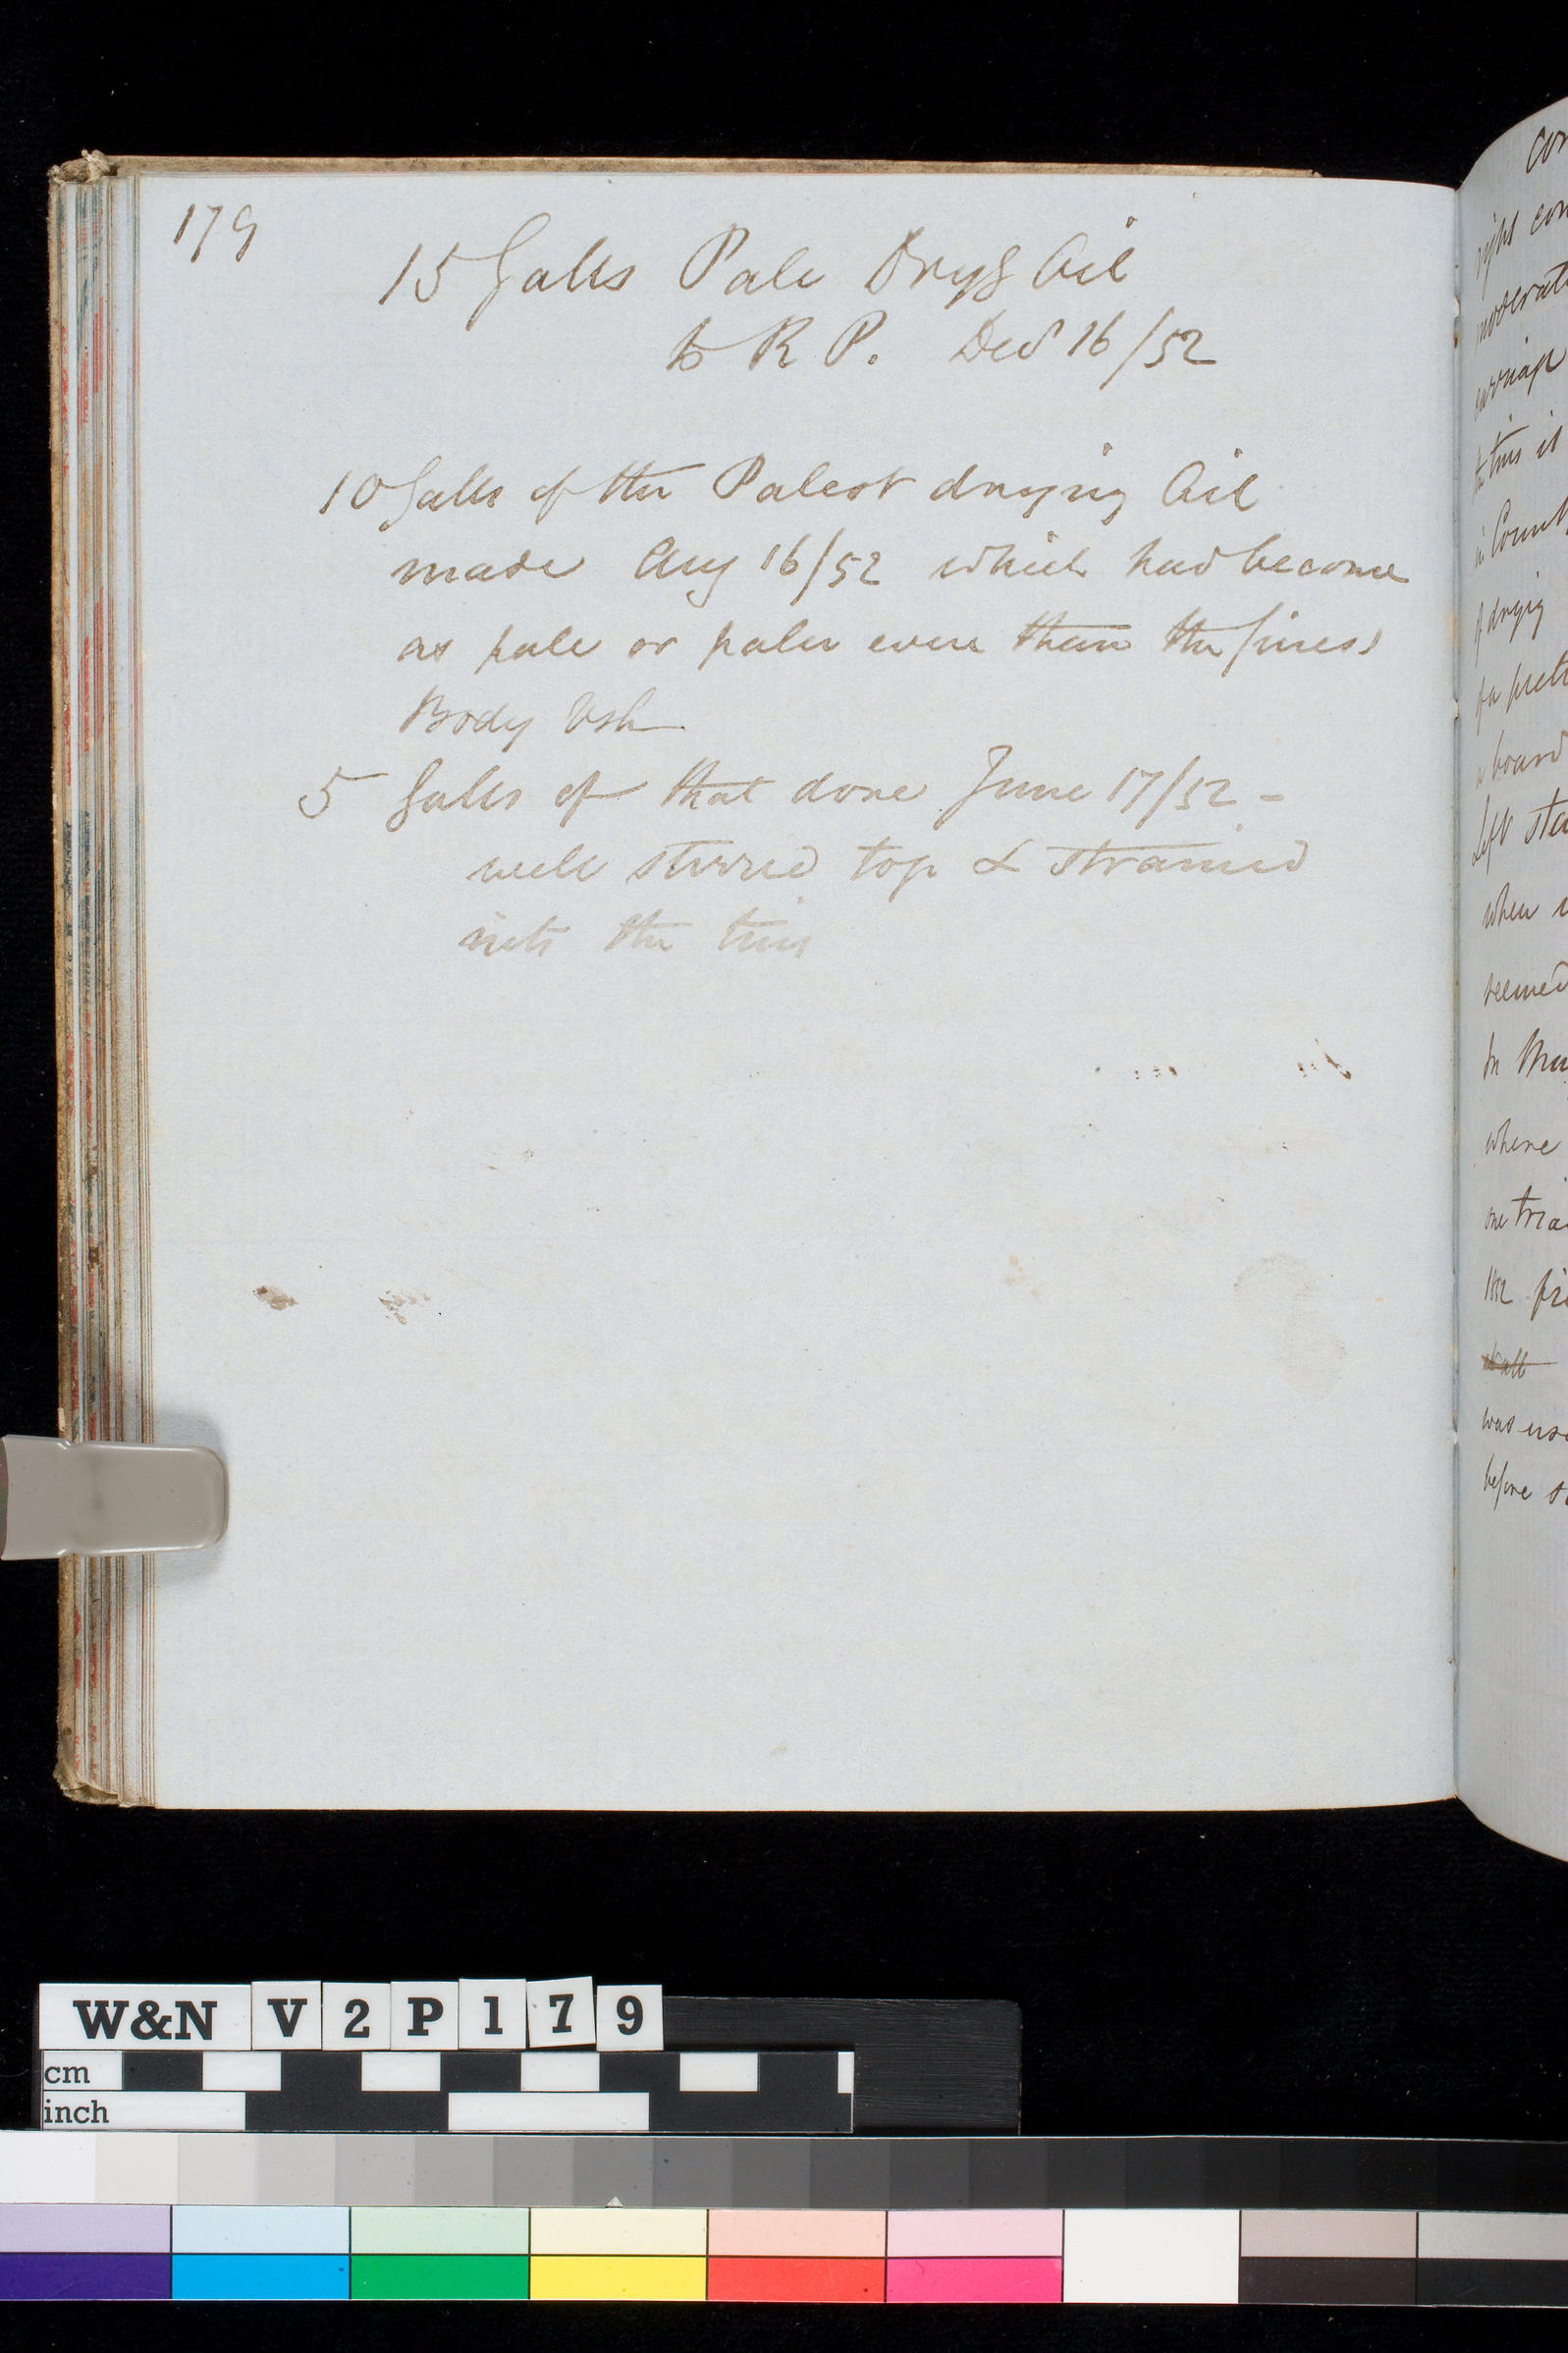 179
15 Galls Pale Dryg Oil
to R P. Decr 16/52
10 Galls of the Palest drying Oil
made Aug 16/52 which had become
as pale or paler even than the finest
Body Vsh
5 Galls of that done June 17/52 -
well stirred top & strained
into the tins
con
right con
moderate
carriage
the tins it
in Count
of drying
of a
a board
left sta
when
seemed
where
one tria
the fi
was use
before s
W&N V2P179
cm
inch